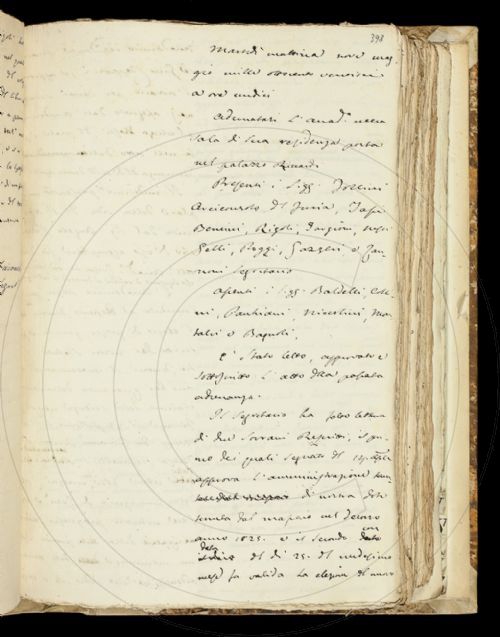 393
Martedì mattina nove mag-
gio mille ottocento ventisei
a ore undici
Adunatasi l'Accad.ª nella
Sala di sua residenza posta
nel palazzo Riccardi
Presenti i Sigg. Follini
Arciconsolo Del Furia,
Bencini, Rigoli, Targioni,
Gelli, Poggi, Gazzeri e Zan-
noni Segretario
Assenti i Sigg. Baldelli, Colle-
ni, Niccolini, Mon-
talvi e Bagnoli,
È stato letto, approvato e
sottoscritto l'atto della passata
adunanza.
Il Segretario ha fatto lettura
di due Sovrani Rescritti, il pri-
mo dei quali segnato del 14. Aprile
approva l'amministrazione
di nostra dote
tenuta dal massaio nel decorso
anno 1825. e il secondo con
data
del dì 25. del medesimo
mese fa valida la elezione del nuovo